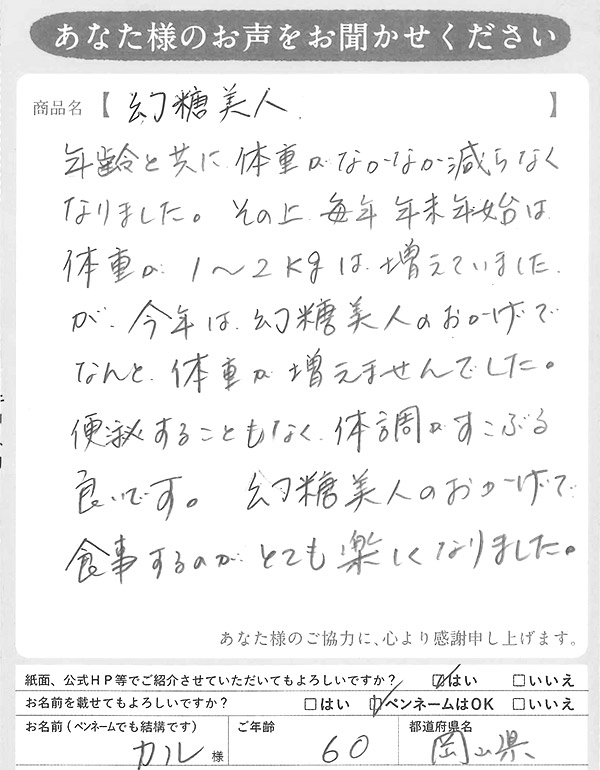 あなた様のお声をお聞かせください
商品名【 幻糖美人 】
年齢と共に体重がなかなか減らなく
なりました。その上毎年年末年始は
体重が1〜2kgは増えていました
が、今年は幻糖美人のおかげで
なんと体重が増えませんでした。
便秘することもなく、体調がすこぶる
良いです。幻糖美人のおかげで
食事するのがとても楽しくなりました。
あなた様のご協力に、心より感謝申し上げます。
紙面、公式HP等でご紹介させていただいてもよろしいですか？ ☑はい □いいえ
お名前を載せてもよろしいですか？ □はい ☑ペンネームはOK □いいえ
お名前（ペンネームでも結構です） ご年齢 都道府県名
カル 様 60 岡山県